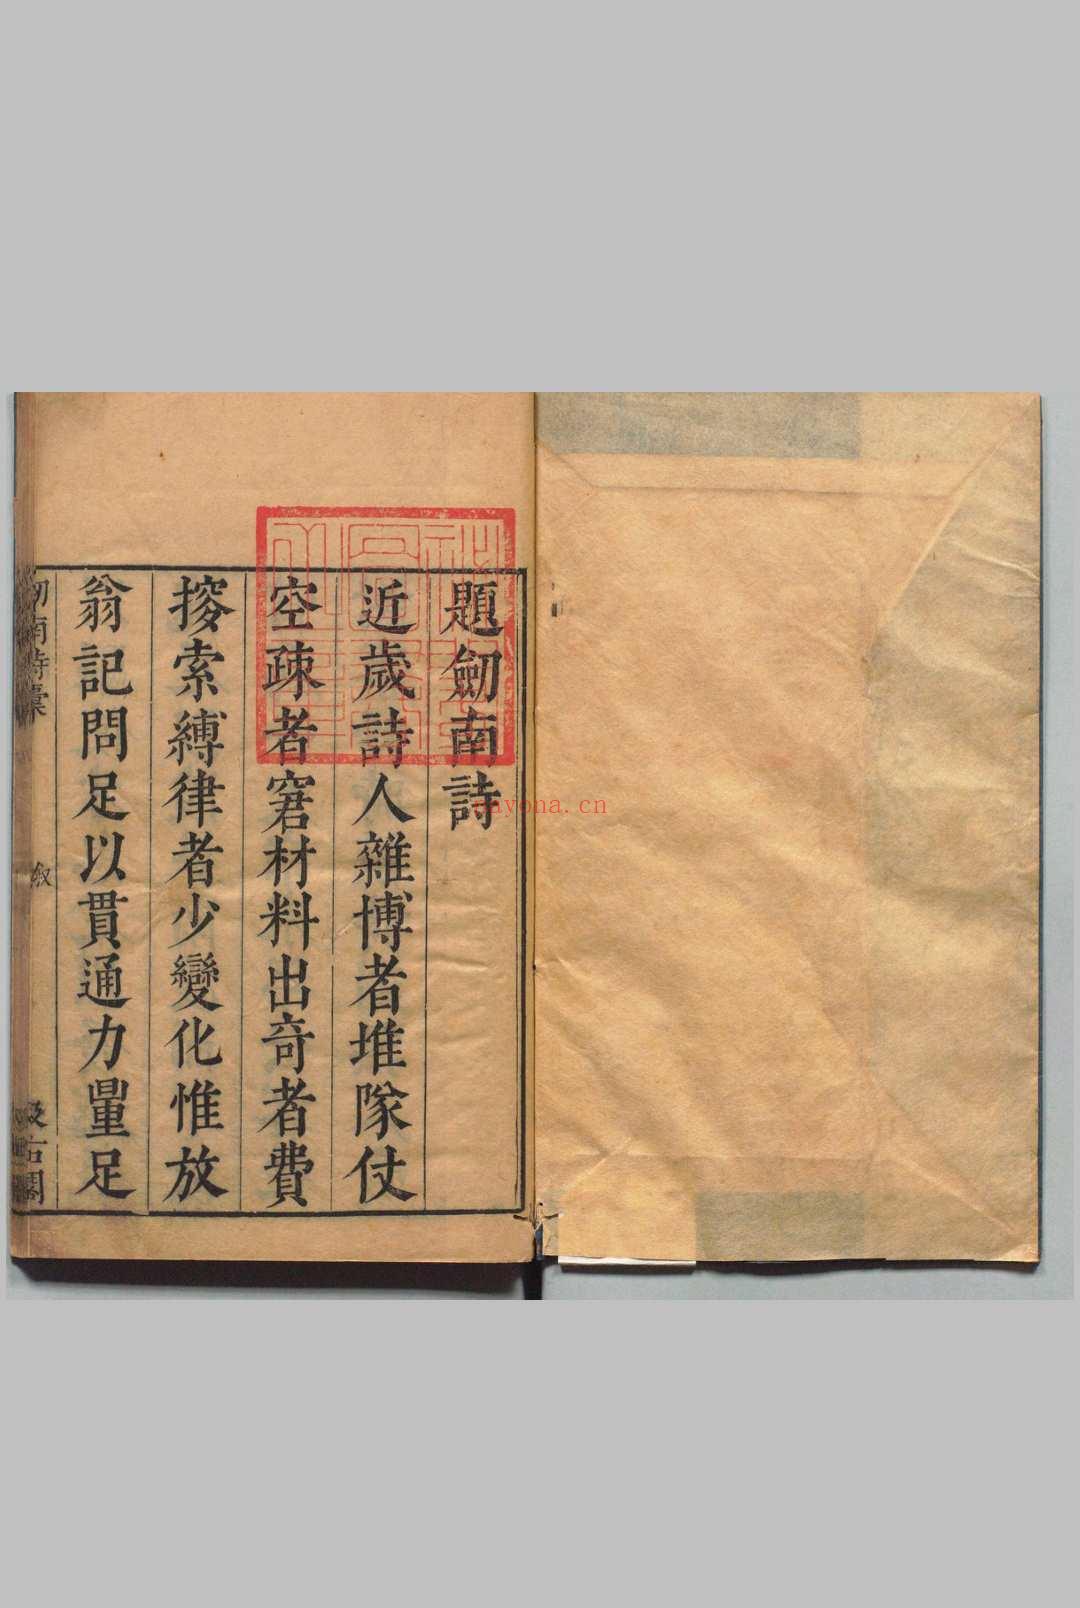 題劒南詩
近歲詩人雜博者堆隊仗
空疎者窘材料出奇者費
搜索縛律者少變化惟放
翁記問足以貫通力量足
劒南詩稾
叙
汲古閣
nayona.cn